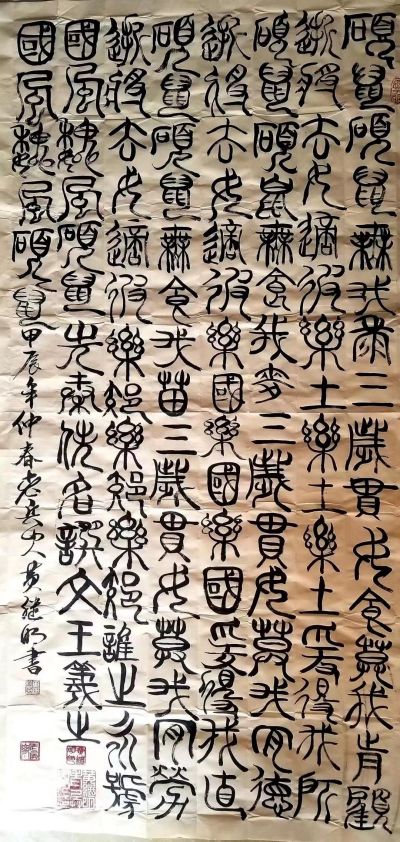 碩鼠碩鼠無我黍三歲貫女食莫我肯顧
逝將去女適彼樂土樂土樂土爰得我所
碩鼠碩鼠無食我麥三歲貫女莫我肯德
逝將去女適彼樂國樂國樂國爰得我直
碩鼠碩鼠無食我苗三歲貫女莫我肯勞
逝將去女適彼樂郊樂郊樂郊誰之永號
國風魏風碩鼠先秦佚名譔文王義之
國風魏風碩鼠甲辰年仲春老兵黄继明書